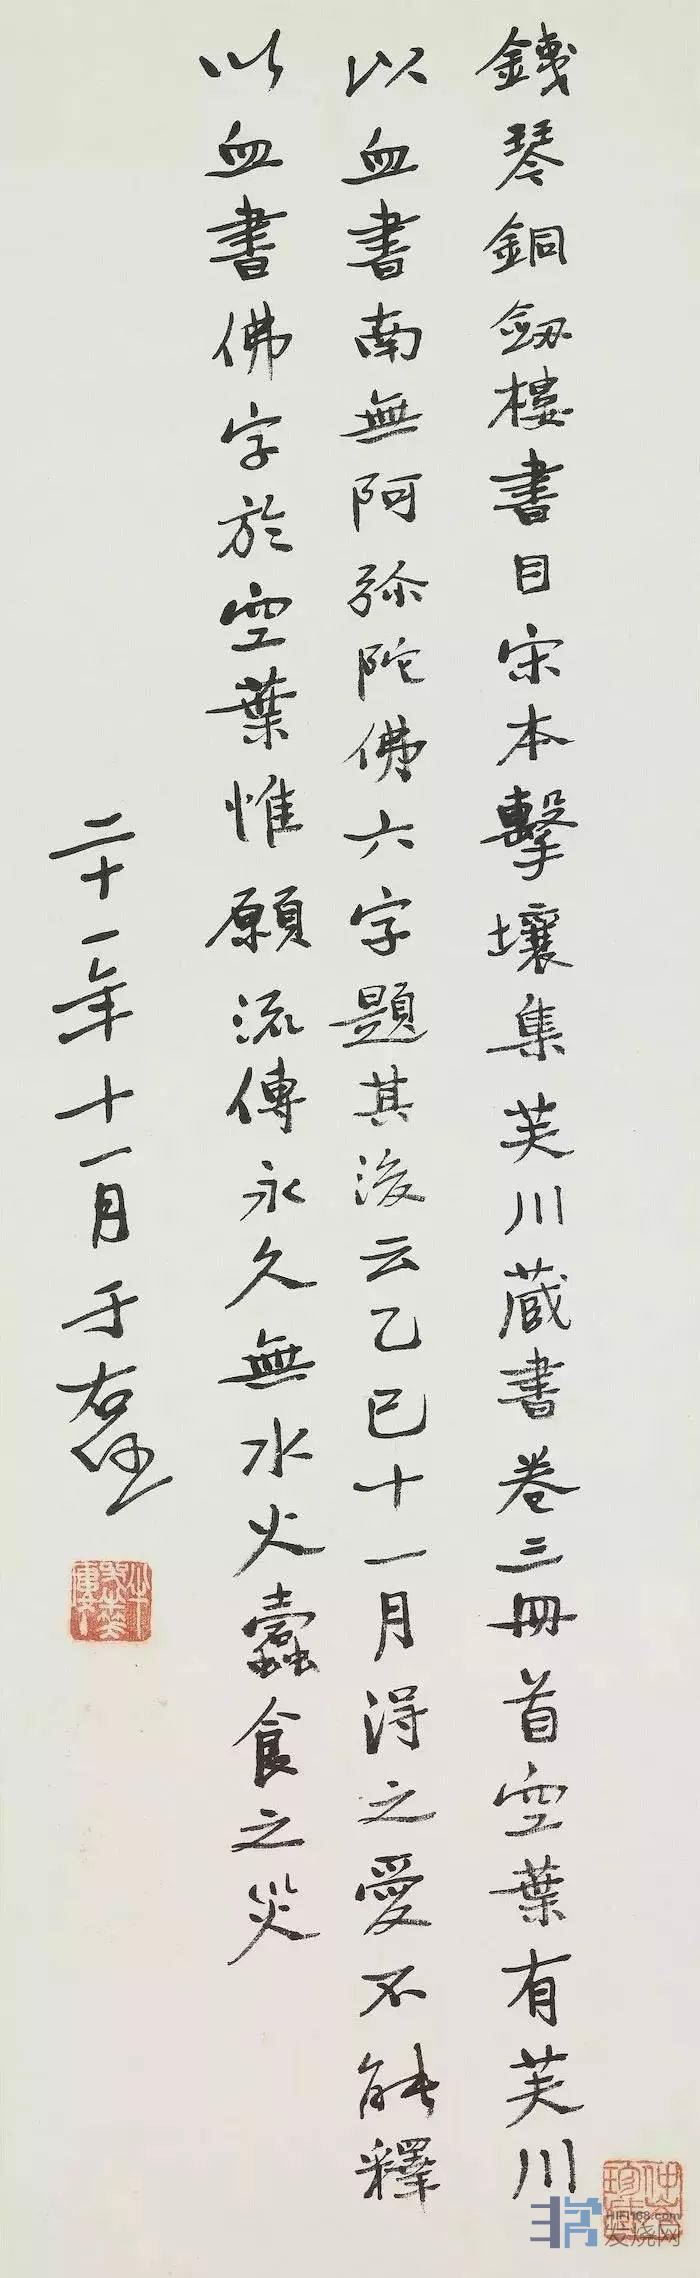 鐵琴銅劔樓書目宋本擊壤集芙川藏書卷三冊首空葉有芙川
以血書南無阿弥陀佛六字題其後云乙巳十一月得之愛不能釋
以血書佛字於空葉惟願流傳永久無水火蠹食之災
二十一年十一月于右任
HIFI168.com
发烧网